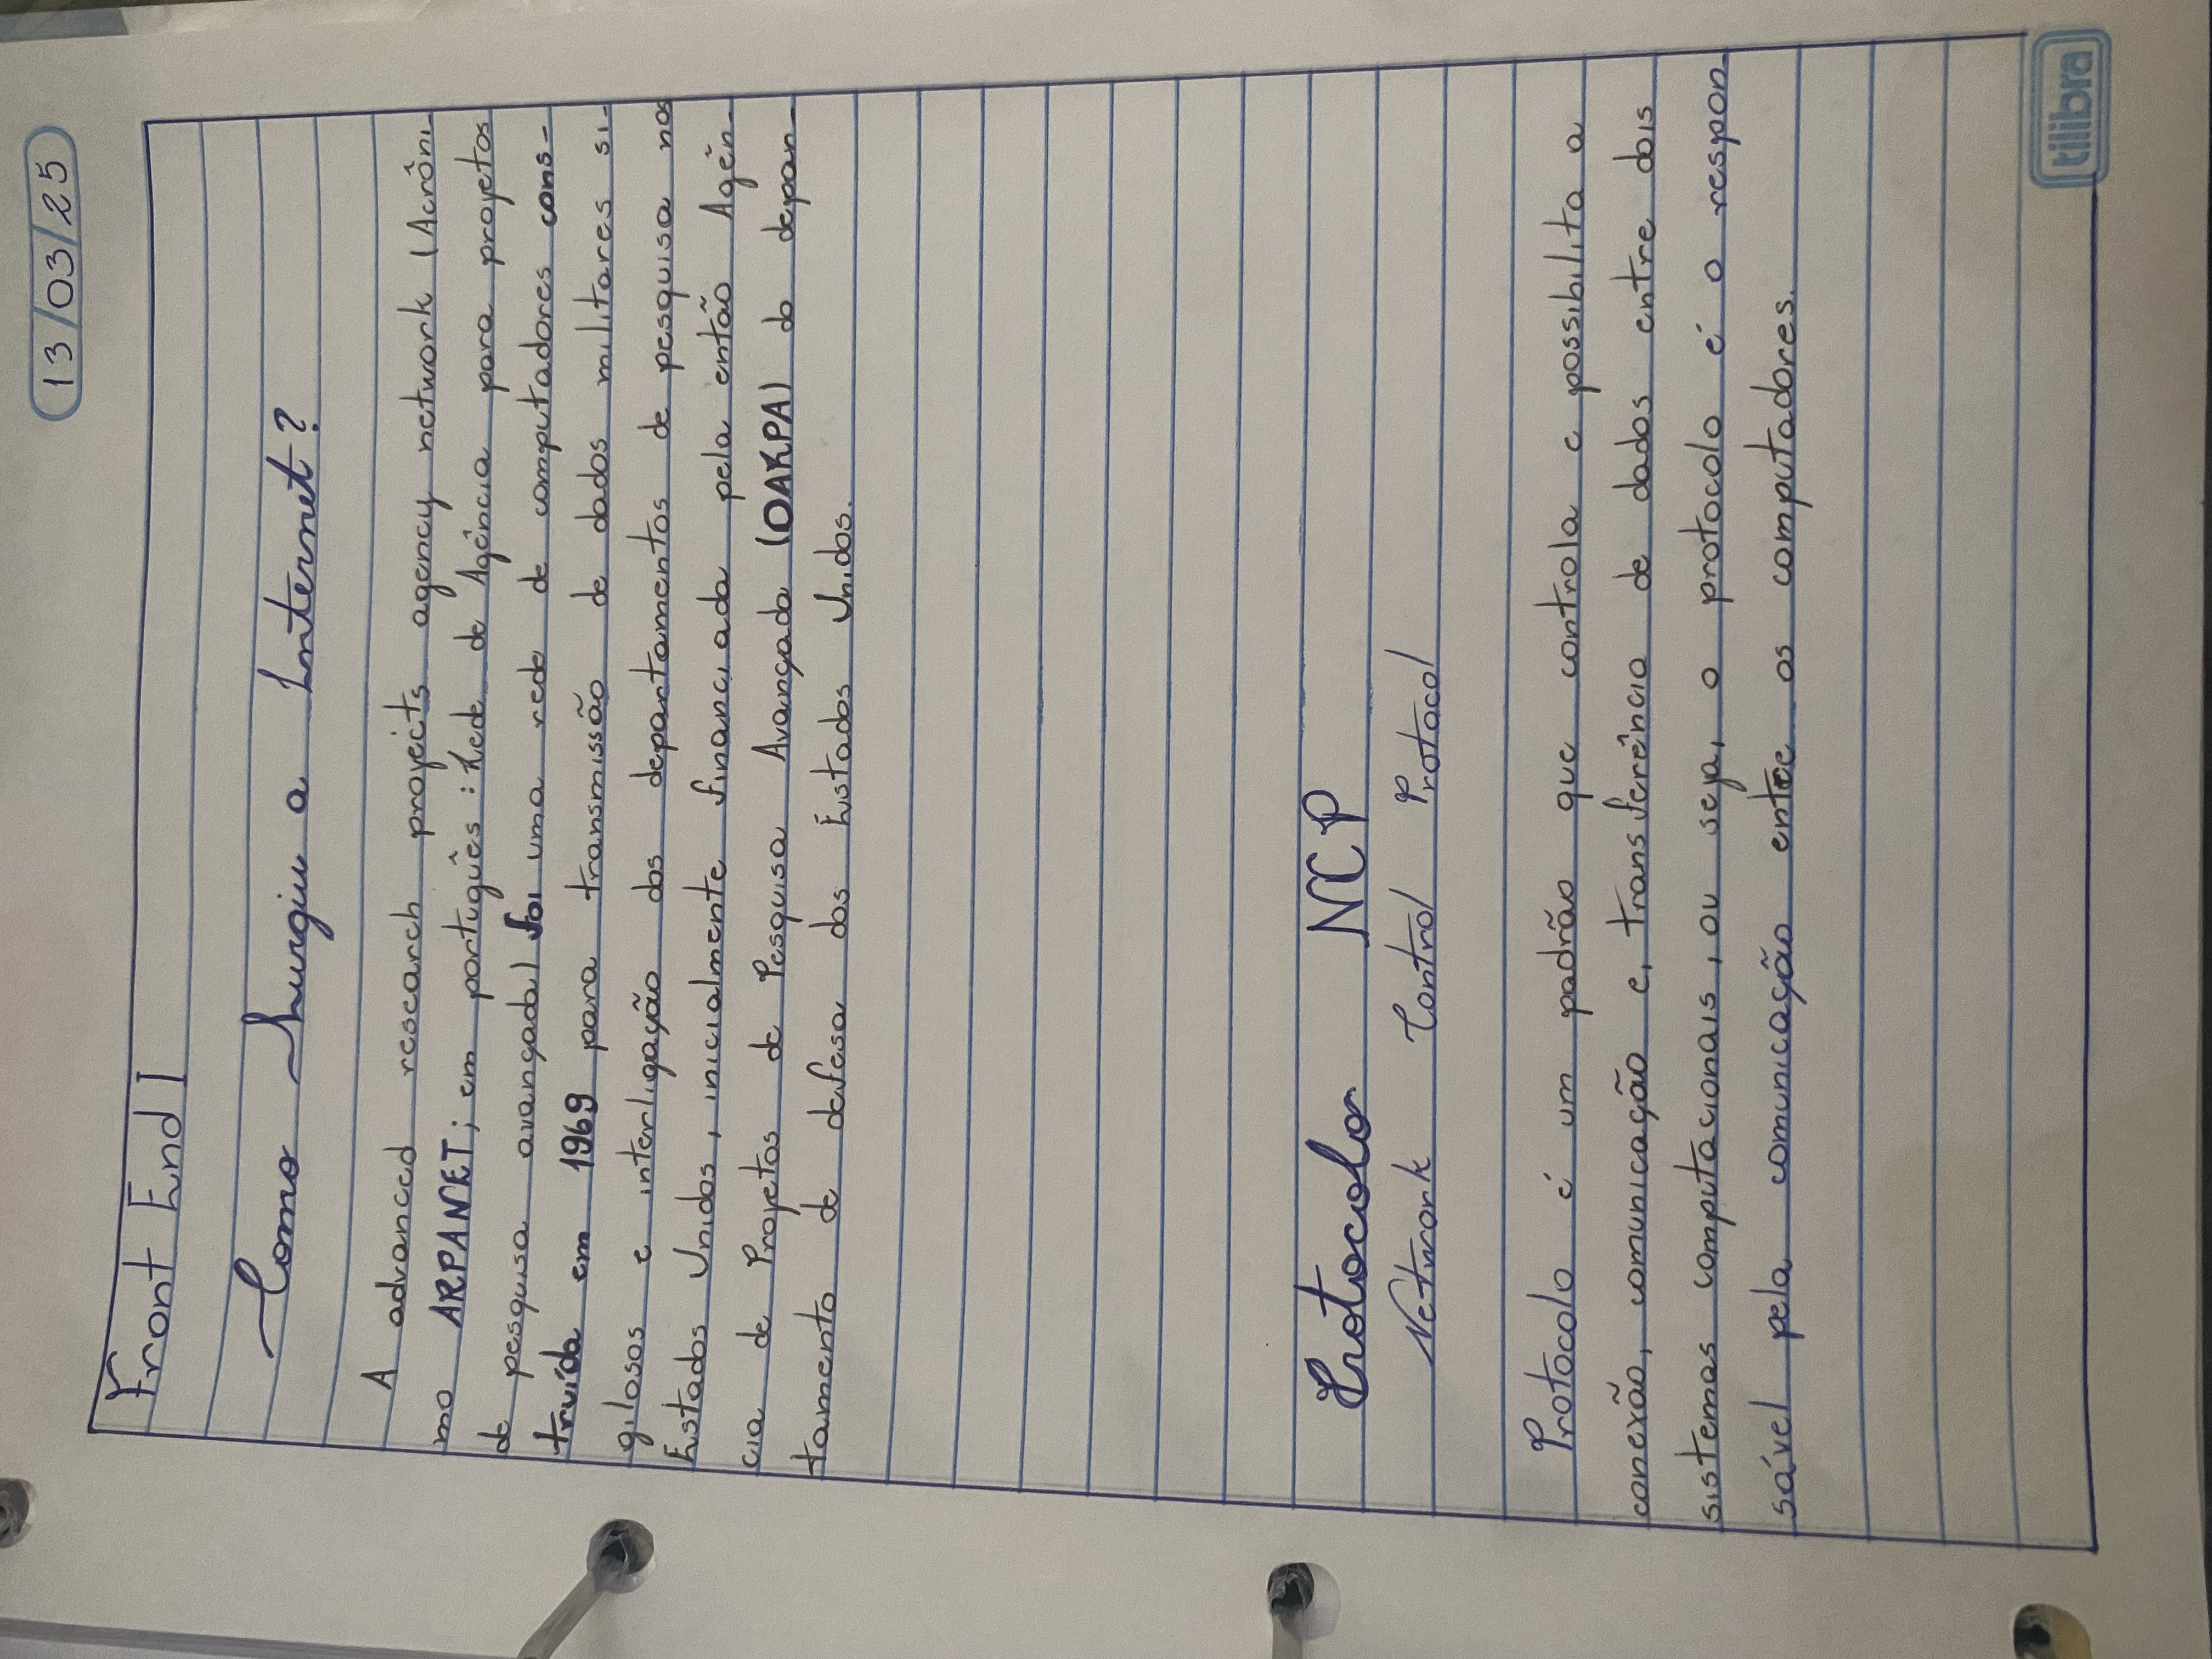 13/03/25
Front End I
Como Surgiu a Internet?
A advanced research proyects agency network (Acrôni-
mo ARPANET; em português: Rede de Agência para projetos
de pesquisa avançada) foi uma rede de computadores cons-
truída em 1969 para transmissão de dados militares si-
gilosos e interligação dos departamentos de pesquisa nos
Estados Unidos, inicialmente financiada pela então Agên-
cia de Projetos de Pesquisa Avançada (DARPA) do depar-
tamento de defesa dos Estados Unidos.
Protocolo NCP
Network Control Protocol
Protocolo é um padrão que controla e possibilita a
conexão, comunicação e, transferência de dados entre dois
sistemas computacionais, ou seja, o protocolo é o respon-
sável pela comunicação entre os computadores.
tilibra